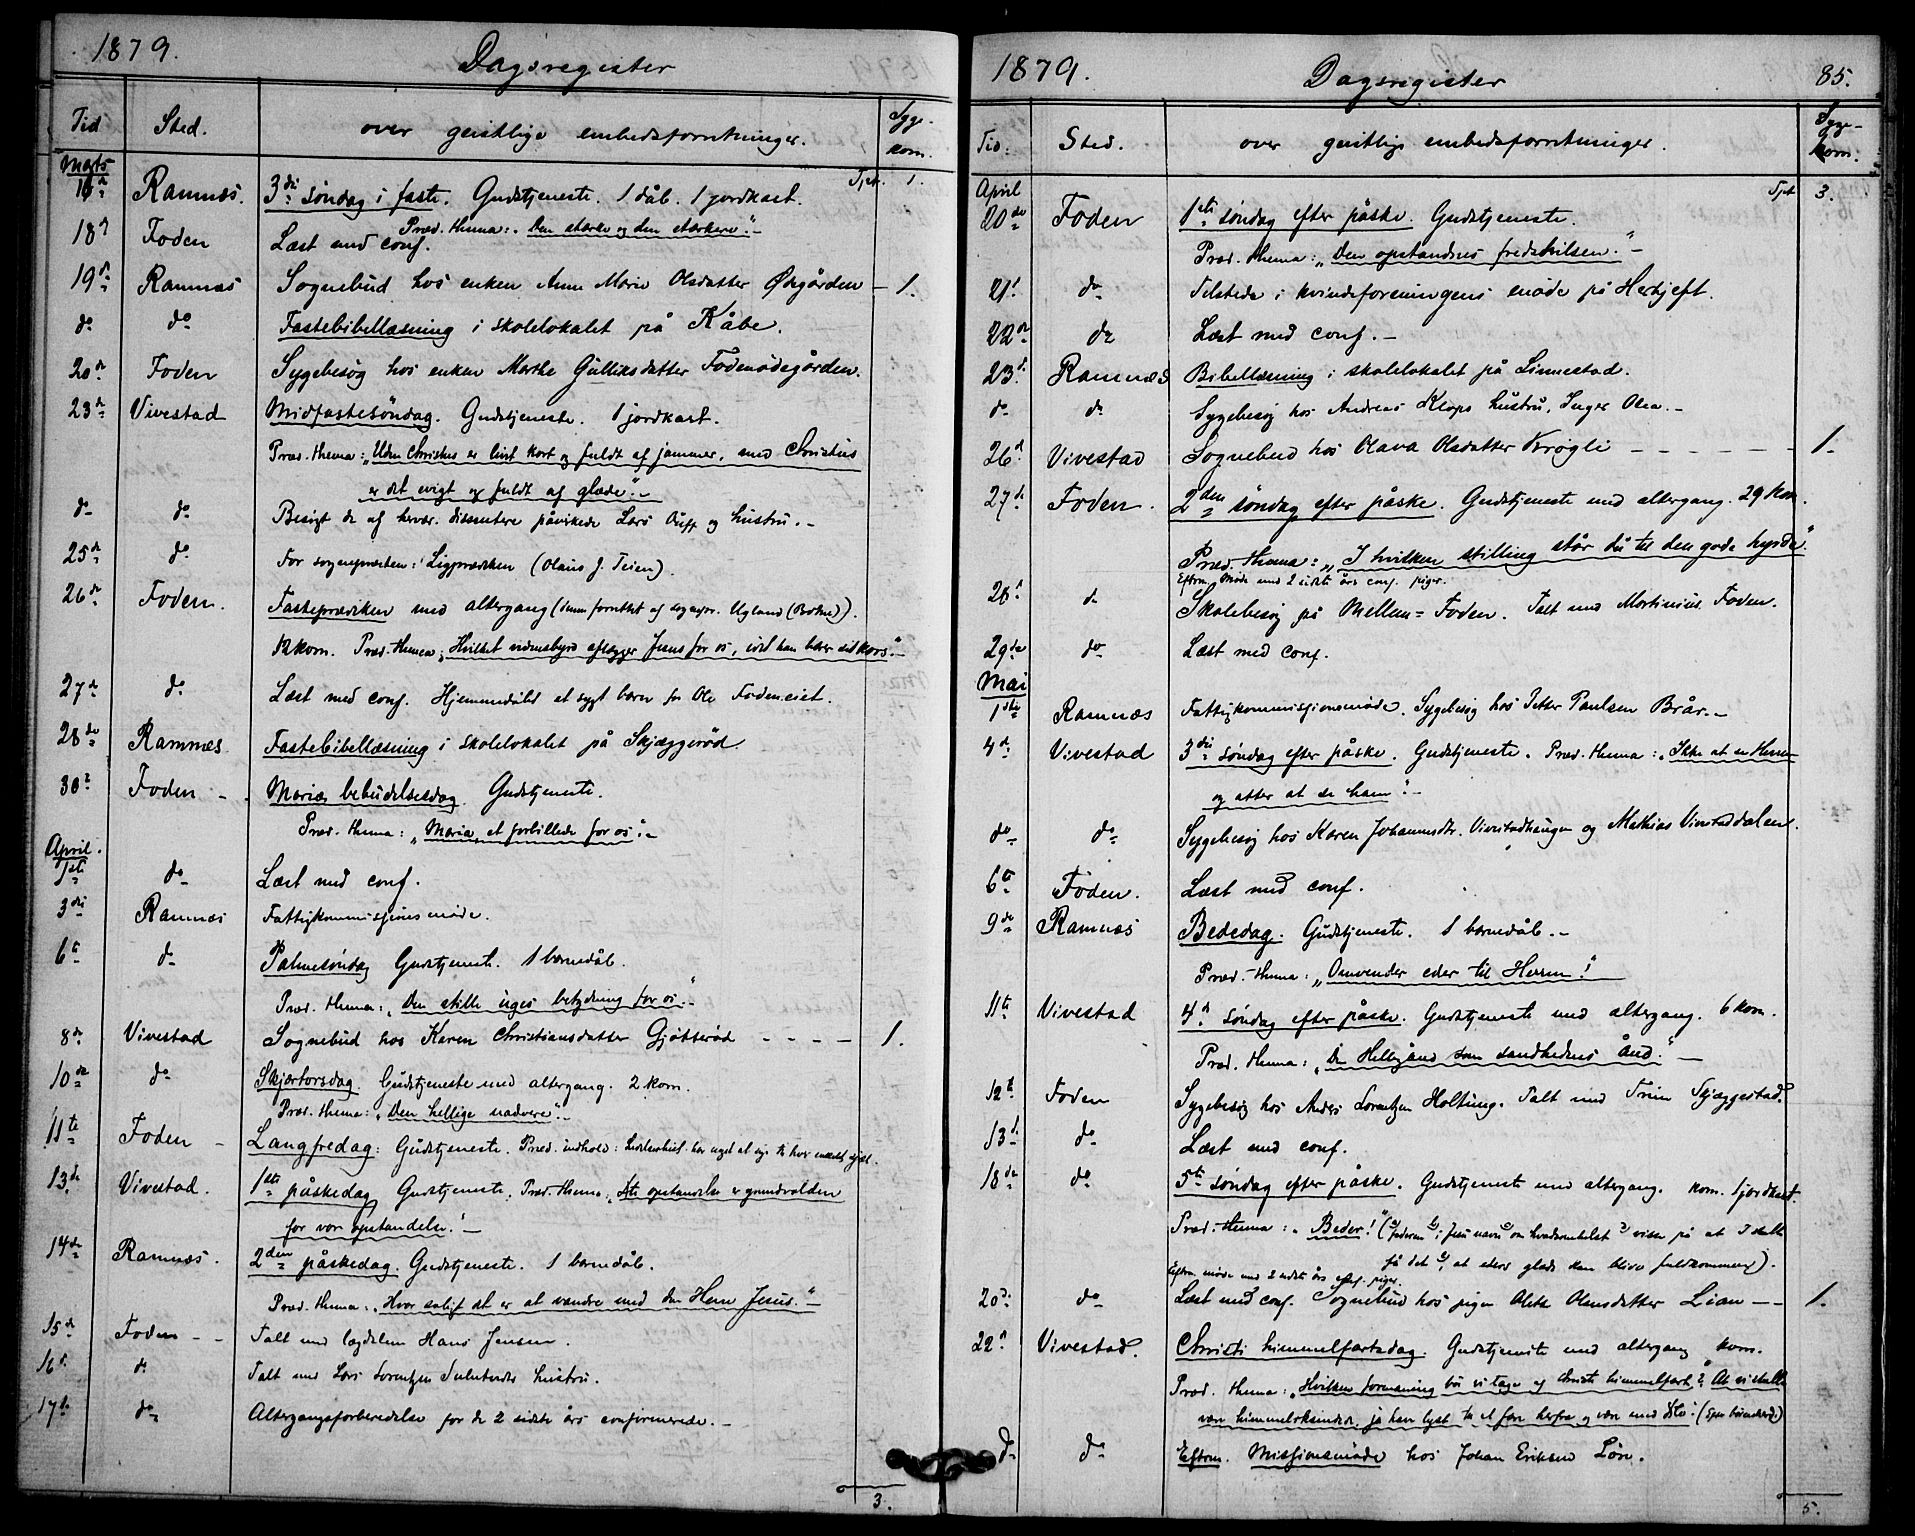 1879.
Dagsregister
Tid
Sted.
over geistlige embedsforretninger.
Syge-
kom.
Marts
16de Ramnæs. 3die søndag i faste. Gudstjeneste. 1 dåb. 1 jordkast. Tpt. 1.
Præd. thema: „Den stærke og den stærkere“.-
18de Foden Læst med conf.
19de Ramnæs Sognebud hos enken Anne Marie Olsdatter Øhgården - 1.
do do Fastebibellæsning i skolelokalet på Kåbe.
20de Foden Sygebesøg hos enken Marthe Gulliksdatter Fodenødegården.
23de Vivestad Midfastesøndag. Gudstjeneste. 1 jordkast.
Præd. thema: „Uden Christus er livet kort og fuldt af jammer, med Christus
er det evigt og fuldt af glæde“.-
do do Besøgt de af dissentere påvirkede Lars og hustru.-
25de do For sognepræsten: Ligprædiken (Olaus J. Teien).
26de Foden. Fasteprædiken med altergang (denne forrettet af sognepr. Ugland (Botne)).
12 kom. Præd. thema: „Hvilket vidnesbyrd aflægger Jesus for os, idet han bærer sit kors“.-
27de do Læst med conf. Hjemmedøbt et sygt barn for Ole Fodeneiet.
28de Ramnæs. Fastebibellæsning i skolelokalet på Skjæggerød.
30te Foden - Mariæ bebudelsesdag. Gudstjeneste.
Præd. thema: „Maria et forbillede for os“.-
April.
1ste do Læst med conf.
3die Ramnæs Fattigkommissionsmøde.
6te do Palmesøndag Gudstjeneste. 1 barnedåb.
Præd. thema: „Den stille uges betydning for os“.-
8de Vivestad Sognebud hos Karen Christiansdatter Gjøtterød - - - - 1.
10de do Skjærtorsdag. Gudstjeneste med altergang. 2 kom.
Præd. thema: „Den hellige nadvere“.-
11te Foden - Langfredag: Gudstjeneste. Præd. indhold: har noget at sige til hver enkelt sjæl.
13de Vivestad. 1ste påskedag Gudstjeneste. Præd. thema: opstandelse er grundvolden
for vor opstandelse.“-
14de Ramnæs. 2den påskedag. Gudstjeneste. 1 barnedåb.
Præd. thema: „Hvor saligt det er at vandre med den Herre Jesus.“-
15de Foden - - Talt med lægdslem Hans Jensen.
16de do Talt med Lars Lorentzen hustru.
17de do Altergangsforberedelse for de 2 sidste års confirmerede.-
3.
1879.
Dagsregister
85.
Tid.
Sted.
over geistlige embedsforretninger.
Syge-
kom.
April Tpt 3.
20de Foden 1ste søndag efter påske. Gudstjeneste.
Præd. thema: „Den opstandnes fredshilsen.“-
21de do Tilstede i kvindeforeningens møde på Hertjeft.
22de do Læst med conf.-
23de Ramnæs Bibellæsning i skolelokalet på Linnestad.
do do Sygebesøg hos Andreas Klops hustru, Inger Olea.-
26de Vivestad Sognebud hos Olava Olsdatter Krøgli - - - - - - 1.
27de Foden. 2den søndag efter påske. Gudstjeneste med altergang. 29 kom.
Præd. thema: „I hvilken stilling står du til den gode hyrde“.
Eftm. møde med 2 sidste års conf. piger.
28de do Skolebesøg på Mellem=Foden. Talt med Martinius Foden.
29de do Læst med conf.
Mai
1ste Ramnæs Fattigkommissionsmøde. Sygebesøg hos Petter Paulsen Brår.-
4de Vivestad 3die søndag efter påske. Gudstjeneste. Præd. thema: „Ikke at se Herren
og atter at se ham“.-
do do Sygebesøg hos Karen Johannesdtr. Vivestadhaugen og Mathias Vivestaddalen.
6te Foden. Læst med conf.
9de Ramnæs Bededag. Gudstjeneste. 1 barnedåb.-
Præd. thema: „Omvender eder til Herren!“
11te Vivestad 4de søndag efter påske. Gudstjeneste med altergang. 6 kom.
Præd. thema: „Den Helligånd som sandhedens Ånd.“-
12te Foden Sygebesøg hos Anders Lorentzen Holtung. Talt med Trine Skjæggestad.
13de do Læst med conf.
18de do 5te søndag efter påske. Gudstjeneste med altergang. kom. 1 jordkast.
Præd. thema: „Beder!“ (faderen i Jesu navn om hvadsomhelst visse på at I skulle
få det, at eders glæde kan blive fuldkommen).
Eftm. møde med 2 sidste års piger.
20de do Læst med conf. Sognebud hos pigen Olsdatter Lian - - 1.
22de Vivestad. Christi himmelfartsdag. Gudstjeneste med altergang kom.
Præd. thema: „Hvilken formaning bør vi tage af Christi himmelfart? At vi skulle
være himmelsksindede, ja have lyst til at fare herfra og være med
do do Eftm. Missionsmøde hos Johan Eriksen Løn.
5.